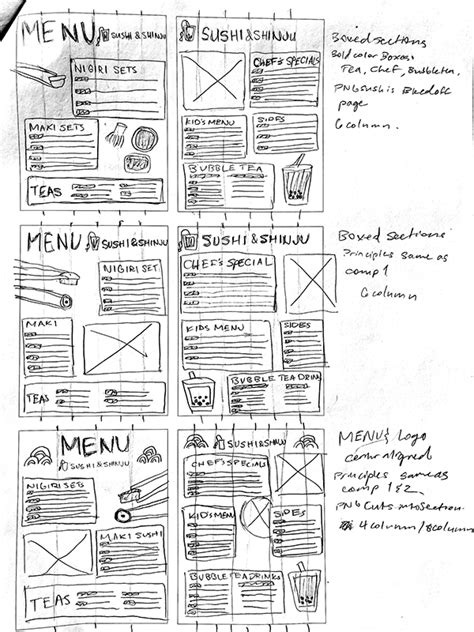 MENU SUSHI & SHINJU
NIGIRI SETS
MAKI SETS
TEAS
SUSHI & SHINJU
CHEF'S SPECIALS
KID'S MENU
SIDES
BUBBLE TEA
Boxed sections
Bold color Boxes:
Tea, Chef, Bubbletea,
PNG sushi
page
6 column.
MENU SUSHI & SHINJU
NIGIRI SET
MAKI
TEAS
SUSHI & SHINJU
CHEF'S SPECIAL
KIDS MENU
SIDES
BUBBLE TEA DRINK
Boxed sections
Principles same as
comp 1
6 column
MENU
SUSHI & SHINJU
NIGIRI SETS
MAKI SUSHI
TEAS
SUSHI & SHINJU
CHEF'S SPECIALS
KID'S MENU
SIDES
BUBBLE TEA DRINKS
MENU & Logo
center aligned
Principles same as
comp 1 & 2
PNG cuts into section
4 column / 8 column